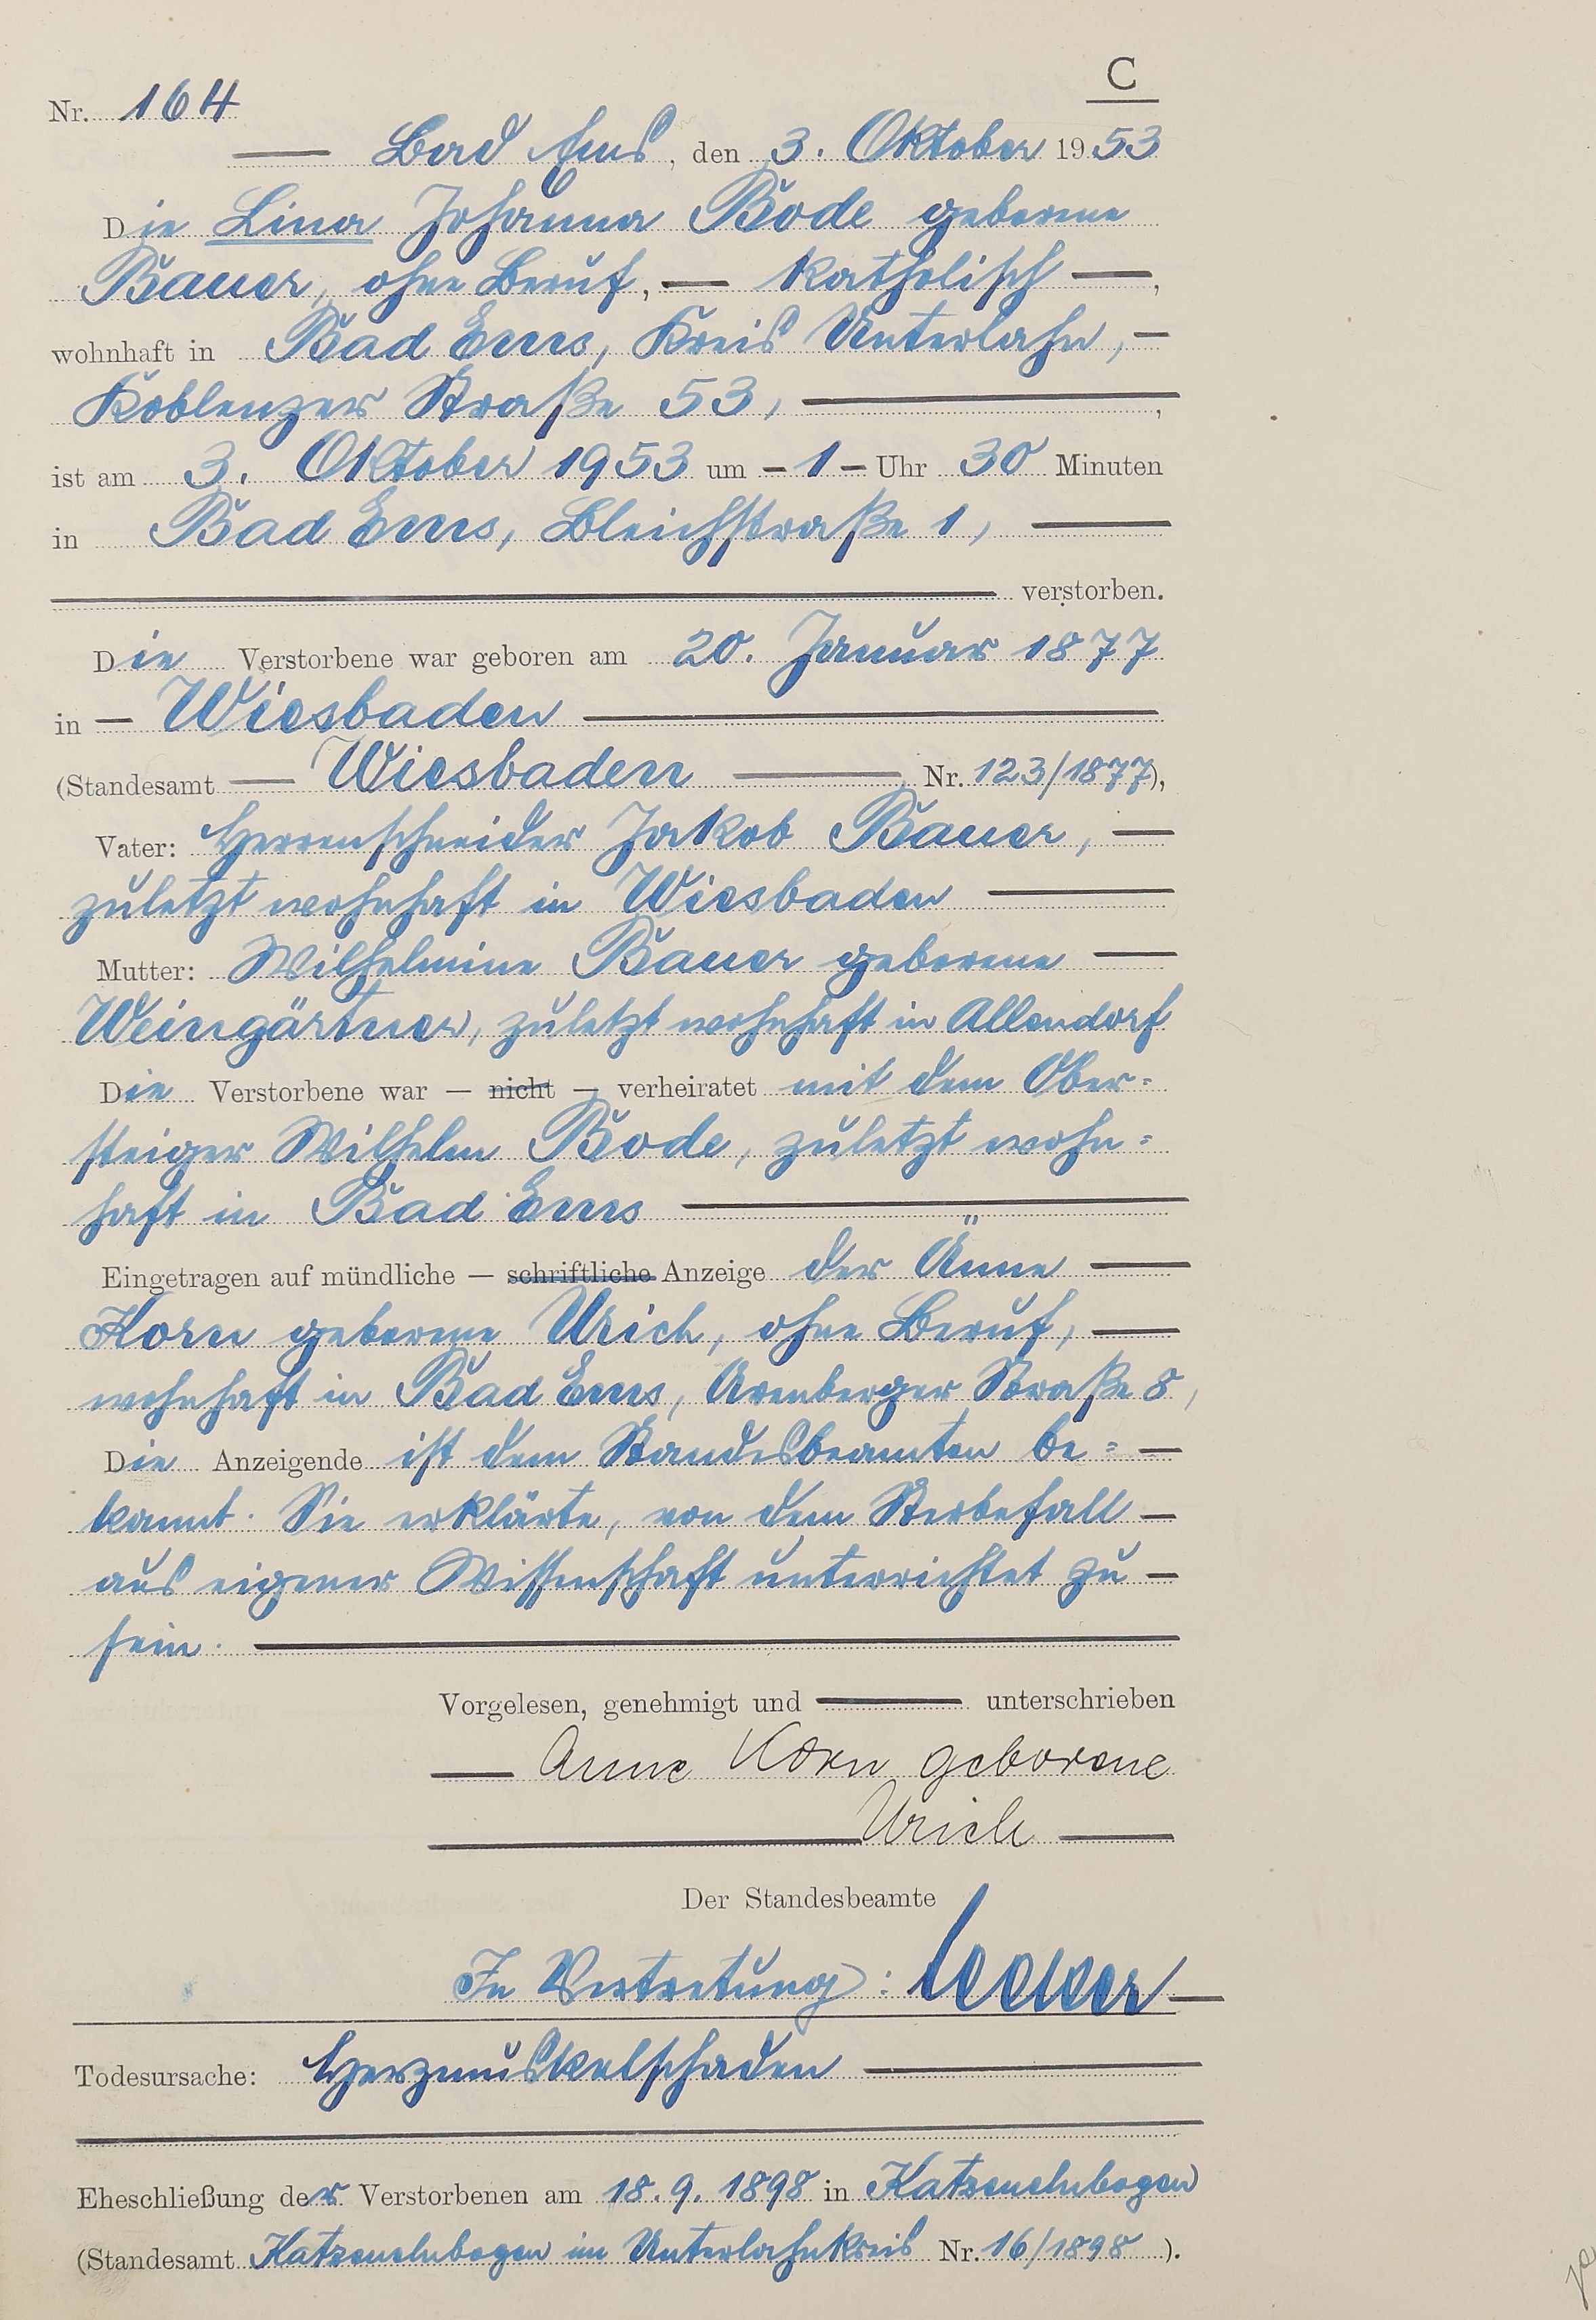 C
Nr. 164
Bad Ems, den 3. Oktober 1953
Die Lina Johanna Bode geborene
Bauer, ohne Beruf, — katholisch —,
wohnhaft in Bad Ems, Kreis Unterlahn, —
Koblenzer Straße 53, —,
ist am 3. Oktober 1953 um — 1 — Uhr 30 Minuten
in Bad Ems, Bleichstraße 1, —
verstorben.
Die Verstorbene war geboren am 20. Januar 1877
in — Wiesbaden —
(Standesamt — Wiesbaden — Nr. 123/1877),
Vater: Herrenschneider Jakob Bauer, —
zuletzt wohnhaft in Wiesbaden —
Mutter: Wilhelmine Bauer geborene —
Weingärtner, zuletzt wohnhaft in Allendorf
Die Verstorbene war — nicht — verheiratet mit dem Ober=
steiger Wilhelm Bode, zuletzt wohn=
haft in Bad Ems —
Eingetragen auf mündliche — schriftliche Anzeige der Änne —
Korn geborene Urich, ohne Beruf, —
wohnhaft in Bad Ems, Arenberger Straße 8,
Die Anzeigende ist dem Standesbeamten be= —
kannt. Sie erklärte, von dem Sterbefall —
aus eigener Wissenschaft unterrichtet zu —
sein. —
Vorgelesen, genehmigt und — unterschrieben
— Anne Korn geborene
Urich —
Der Standesbeamte
In Vertretung:
Todesursache: Herzmuskelschaden —
Eheschließung der Verstorbenen am 18.9.1898 in Katzenelnbogen
(Standesamt Katzenelnbogen im Unterlahnkreis Nr. 16/1898).